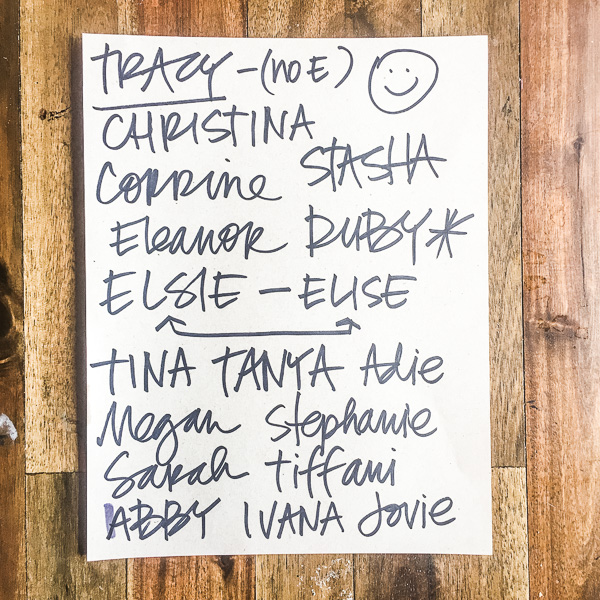 TRACY - (no E)
CHRISTINA
Corrine STASHA
Eleanor RUBY*
ELSIE - ELISE
TINA TANYA Adie
Megan Stephanie
Sarah Tiffani
ABBY IVANA Jovie